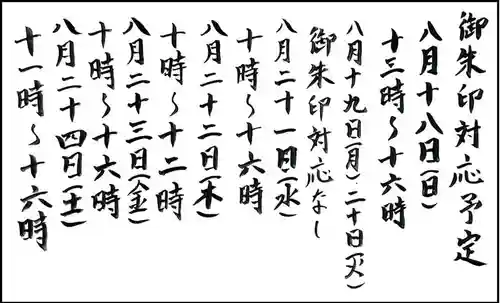 御朱印対応予定
八月十八日(日)
十三時〜十六時
八月十九日(月)・二十日(火)
御朱印対応なし
八月二十一日(水)
十時〜十六時
八月二十二日(木)
十時〜十二時
八月二十三日(金)
十時〜十六時
八月二十四日(土)
十一時〜十六時